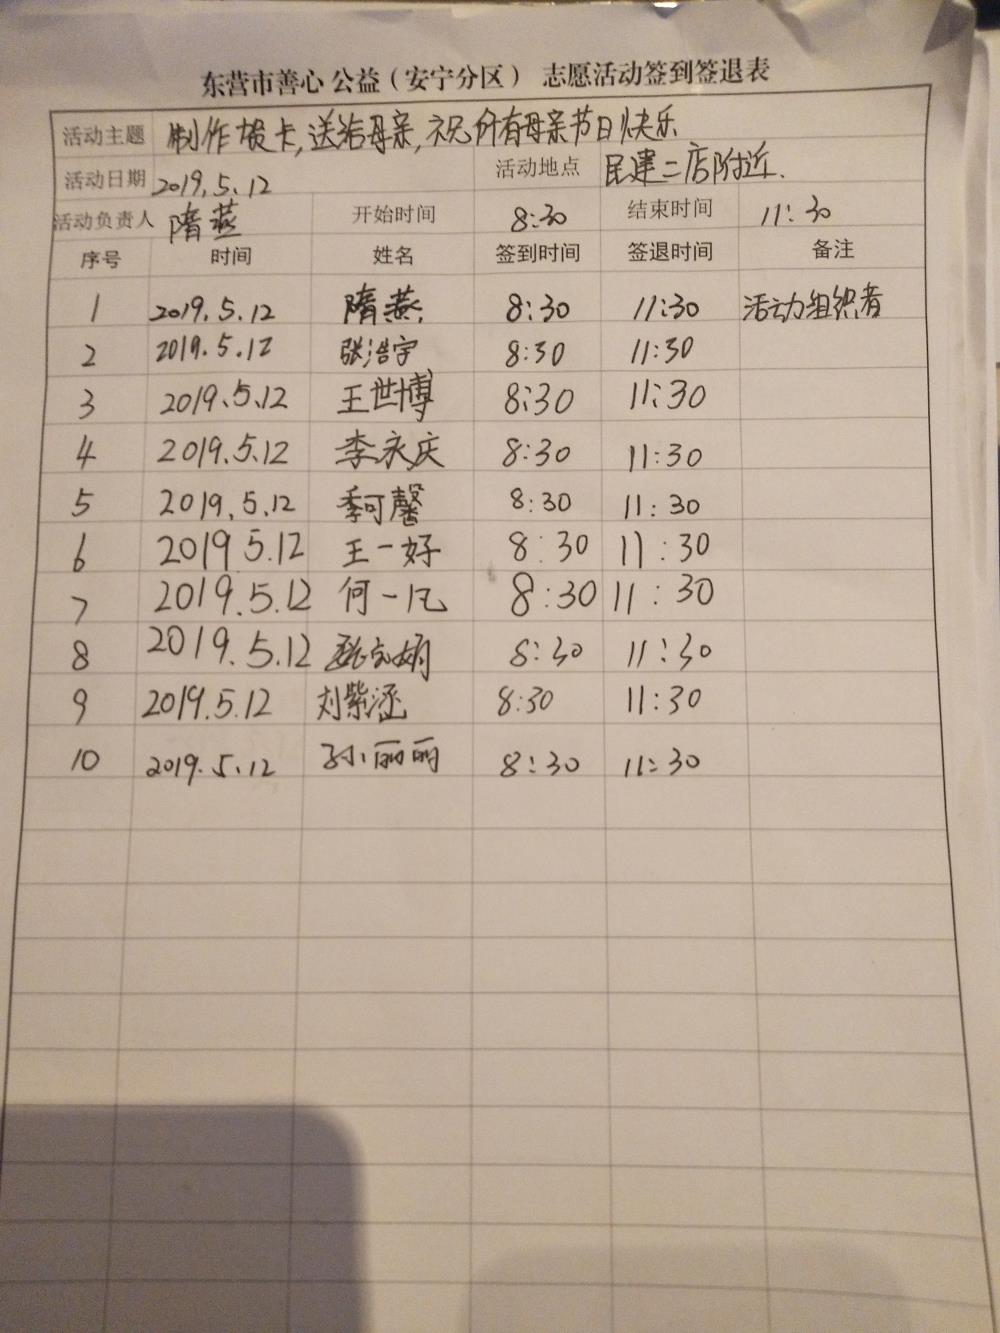 东营市善心公益（安宁分区） 志愿活动签到签退表
活动主题 制作贺卡,送给母亲,祝所有母亲节日快乐
活动日期 2019.5.12 活动地点 民建二店附近.
活动负责人 隋燕 开始时间 8:30 结束时间 11:30
序号 时间 姓名 签到时间 签退时间 备注
1 2019.5.12 隋燕. 8:30 11:30 活动组织者
2 2019.5.12 张浩宇 8:30 11:30
3 2019.5.12 王世博 8:30 11:30
4 2019.5.12 李永庆 8:30 11:30
5 2019.5.12 季可馨 8:30 11:30
6 2019 5.12 王一好 8:30 11:30
7 2019.5.12 何一凡 8:30 11:30
8 2019.5.12 8:30 11:30
9 2019.5.12 刘紫涵 8:30 11:30
10 2019.5.12 孙丽丽 8:30 11:30